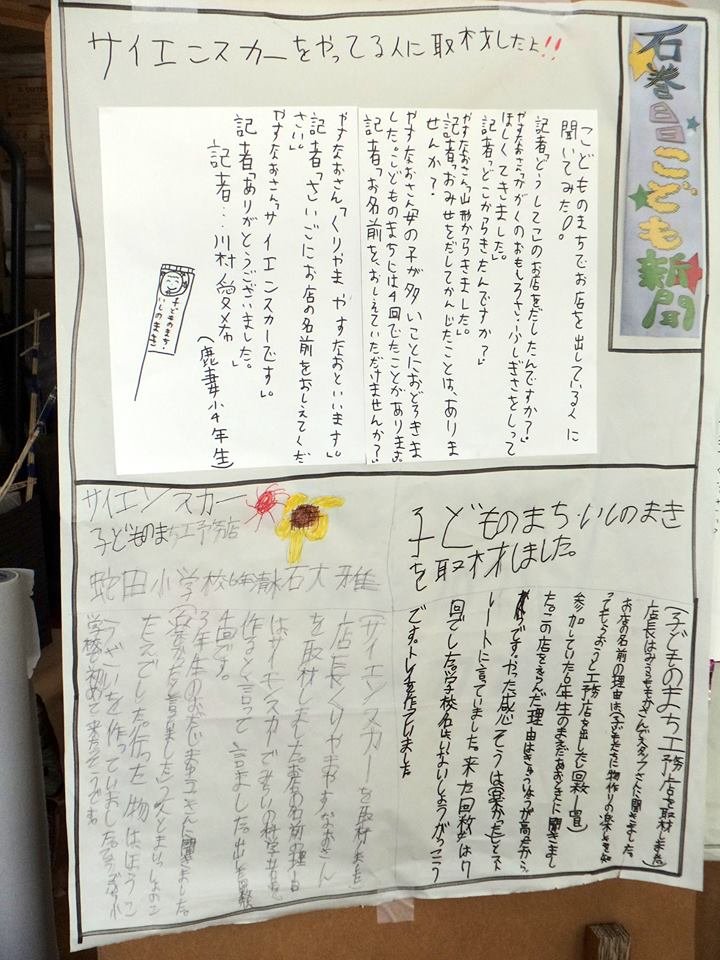 石巻日日こども新聞
サイエンスカーをやってる人に取材したよ!!
こどものまちでお店を出している人に
聞いてみたの。
記者「どうしてこのお店をだしたんですか?」
やすなおさん「かがくのおもしろさ、ふしぎさをしって
ほしくてきました。」
記者「どこからきたんですか?」
やすなおさん「山形からきました。」
記者「おみせをだしてかんじたことは、ありま
せんか?」
やすなおさん「女の子が多いことにおどろきま
した。こどものまちには4回でたことがあります。」
記者「お名前を、おしえていただけませんか?」
やすなおさん「くりやま やすなおといいます。」
記者「さいごにお店の名前をおしえてくだ
さい。」
やすなおさん「サイエンスカーです。」
記者「ありがとうございました。」
記者:川村
(鹿妻小4年生)
子どものまち・
いしのまき
子どものまちいしのまき
を取材しました。
(子どものまち工務店を取材しました)
お店の名前の理由は、子どもたちに物作りの楽しさを知
ってもらおうと工務店を出した回数1回
参加していた6年生の
たこの店をえらんだ理由はきゅうりょうが高だから。
です。やった感そうは(楽かった)とスト
レートに言ていました。来た回数は7
回でした。学校名は
です。トレイを作ていました
サイエンスカー
子どものまち工務店
蛇田小学校6年清水石大雅
(サイエンスカーを取材しました)
店長くりやまやすなおさん
を取材しました。お店の名前の理由
はサイエンスカーでみらいの科学者を
作ると言って言ました。出した回数
4回です。
3年生の
(楽かった)と言うました。
たえでした。作った物は、ほうこ
うざいを作っていました。
学校で初めて来たそうです。